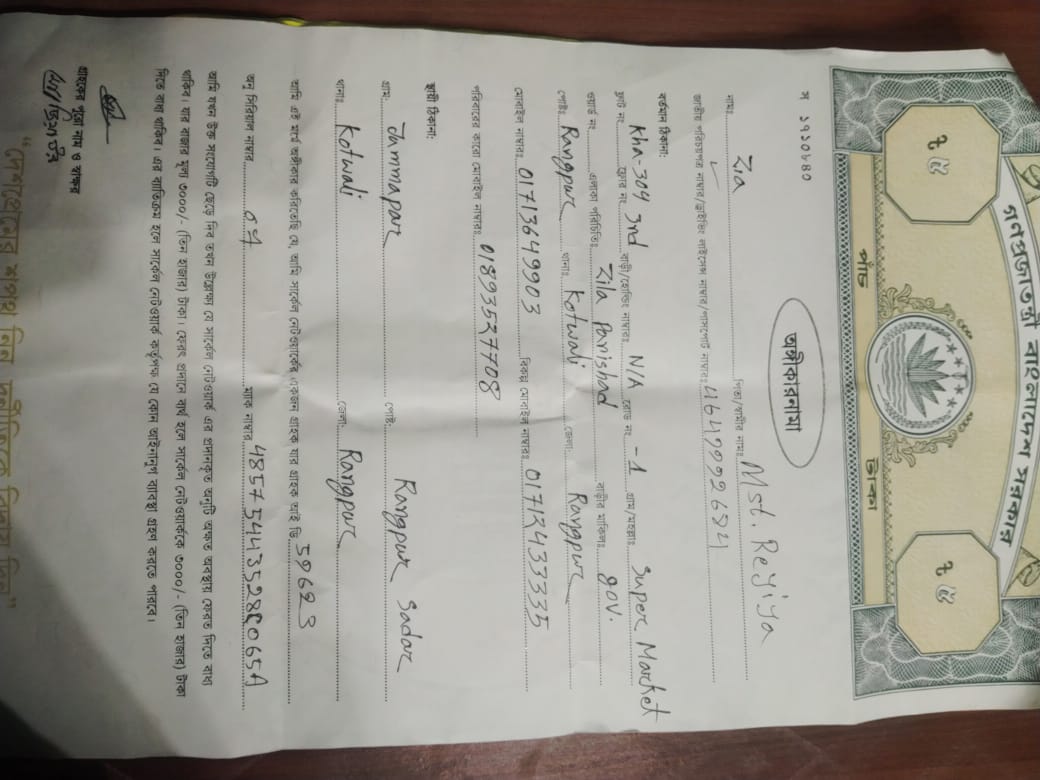 গণপ্রজাতন্ত্রী বাংলাদেশ সরকার
৳ ৫ ৳ ৫
পাঁচ টাকা
অঙ্গীকারনামা
নামঃ Zia পিতা/স্বামীর নামঃ Mst. Rejiya
জাতীয় পরিচয়পত্র নাম্বার/ড্রাইভিং লাইসেন্স নাম্বার/পাসপোর্ট নাম্বারঃ 4649992624
বর্তমান ঠিকানা:
ফ্লাট নং Kha-304 ফ্লোর নং 3rd বাড়ী/হোল্ডিং নাম্বারঃ N/A রোড নং -1 গ্রাম/মহল্লাঃ Super Market
ওয়ার্ড নং এলাকা পরিচিতিঃ Zila Parishad বাড়ীর মালিকঃ gov.
পোষ্টঃ Rangpur থানাঃ Kotwali জেলা: Rangpur
মোবাইল নাম্বারঃ 01713649903 বিকল্প মোবাইল নাম্বারঃ 01712433335
পরিবারের কারো মোবাইল নাম্বারঃ 01893527708
স্থায়ী ঠিকানা:
গ্রাম: Jammapar পোষ্ট: Rangpur Sadar
থানাঃ Kotwali জেলা: Rangpur
আমি এই মর্মে অঙ্গীকার করিতেছি যে, আমি সার্কেল নেটওয়ার্কের একজন গ্রাহক যার গ্রাহক আই ডি 59623
অনু সিরিয়াল নাম্বার ম্যাক নাম্বার
আমি যখন উক্ত সংযোগটি ছেড়ে দিব তখন উল্লেখ্য যে সার্কেল নেটওয়ার্ক এর প্রদানকৃত অনুটি অক্ষত অবস্থায় ফেরত দিতে বাধ্য
থাকিব। যার বাজার মূল্য ৩০০০/- (তিন হাজার) টাকা। ফেরৎ প্রদানে ব্যর্থ হলে সার্কেল নেটওয়ার্ককে ৩০০০/- (তিন হাজার) টাকা
দিতে বাধ্য থাকিব। এর ব্যতিক্রম হলে সার্কেল নেটওয়ার্ক কর্তৃপক্ষ যে কোন আইনানুগ ব্যবস্থা গ্রহণ করতে পারবে।
গ্রাহকের পুরো নাম ও স্বাক্ষর